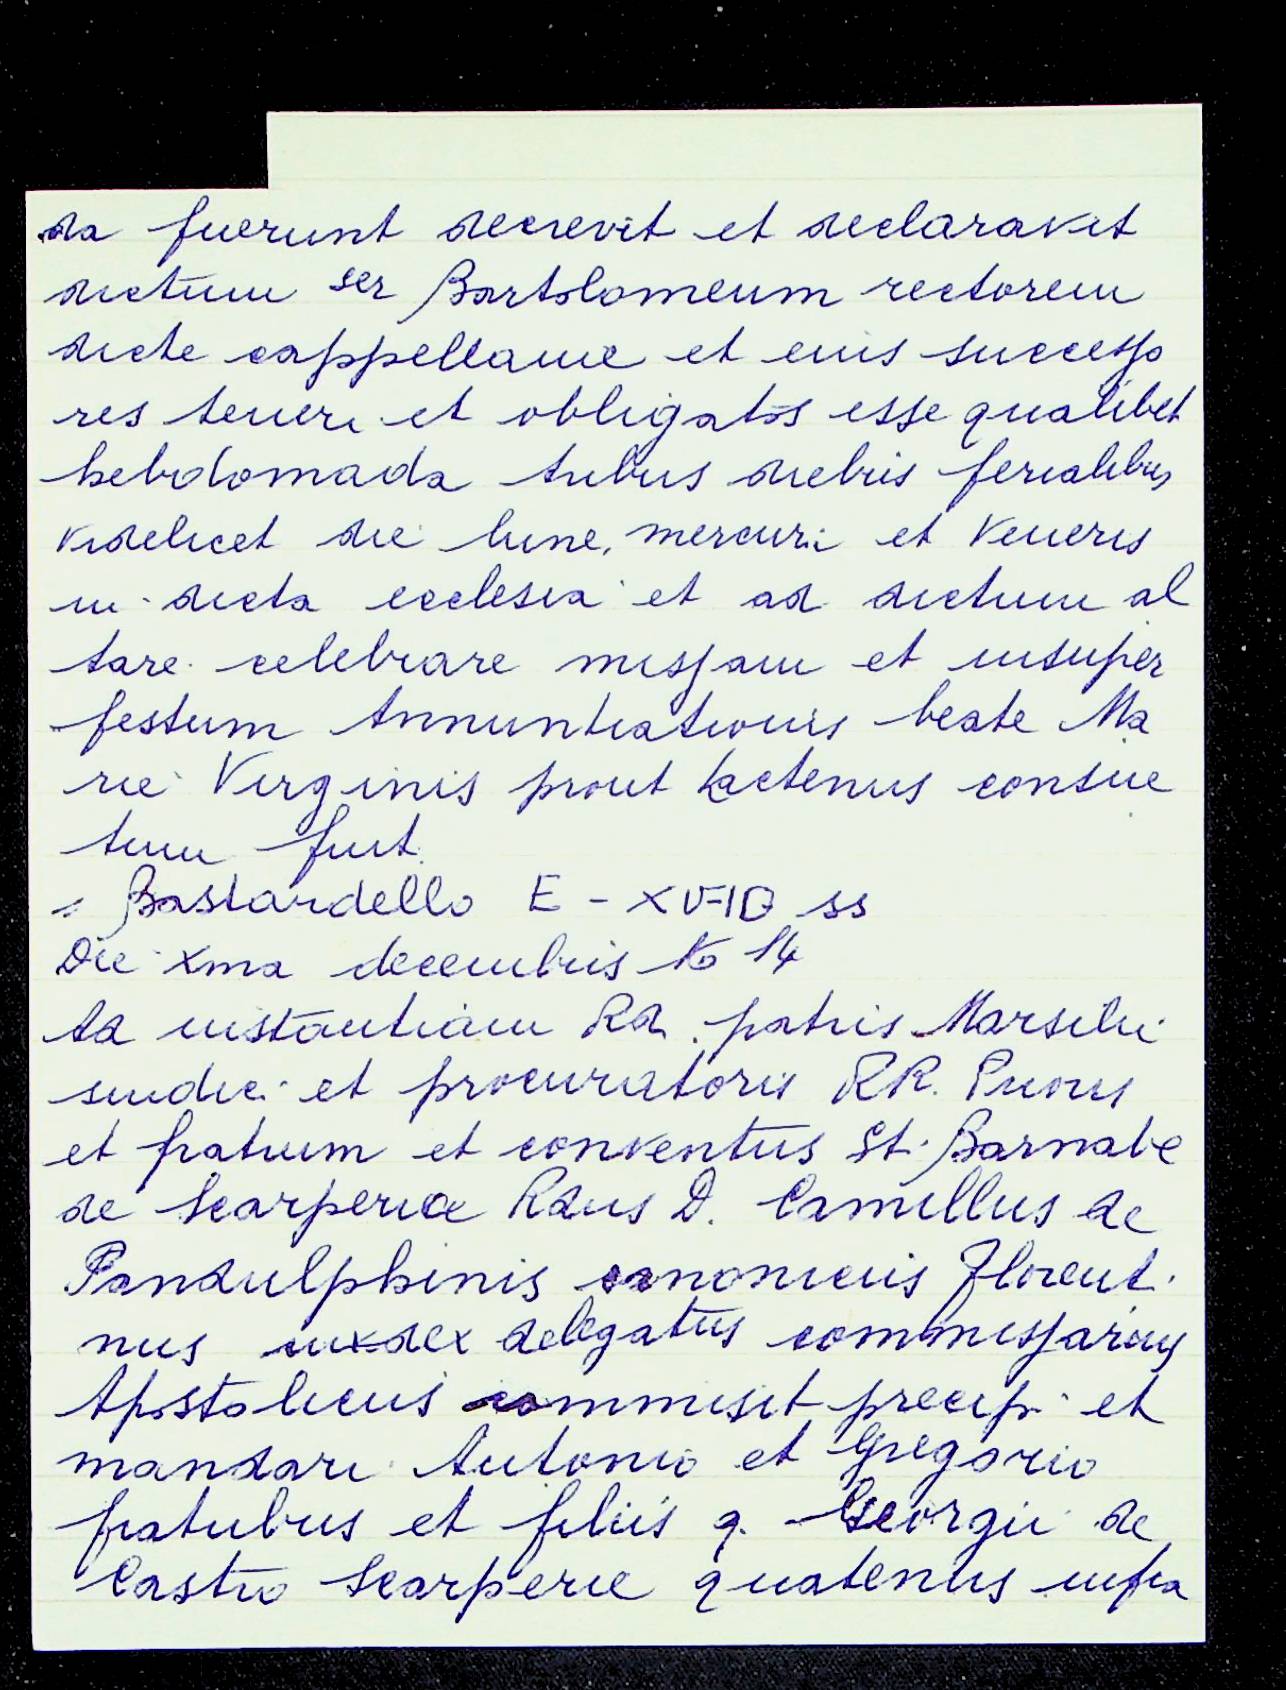 da fuerunt decrevit et declaravit
dictum ser Bartolomeum rectorem
dicte cappellanie et eius successo
res teneri et obligatos esse qualibet
hebdomada tribus diebus ferialibus
videlicet die lune, mercuri et Veneris
in dicta ecclesia et ad dictum al
tare celebrare missam et insuper
festum Annuntiationis beate Ma
rie Virginis prout hactenus consue
tum fuit.
Bastardello E - XVIII ss
Die xma decembris 1614
Ad instantiam Rd. patris Marsilii
sindici et procuratoris RR. Prioris
et fratrum et conventus St. Barnabe
de Scarperia Rdus D. Camillus de
Pandulphinis canonicus Florent.
nus iudex delegatus commissarius
Apostolicus commisit precipi et
mandari Antonio et Gregorio
fratribus et filiis q. Georgii de
Castro Scarperie quatenus infra